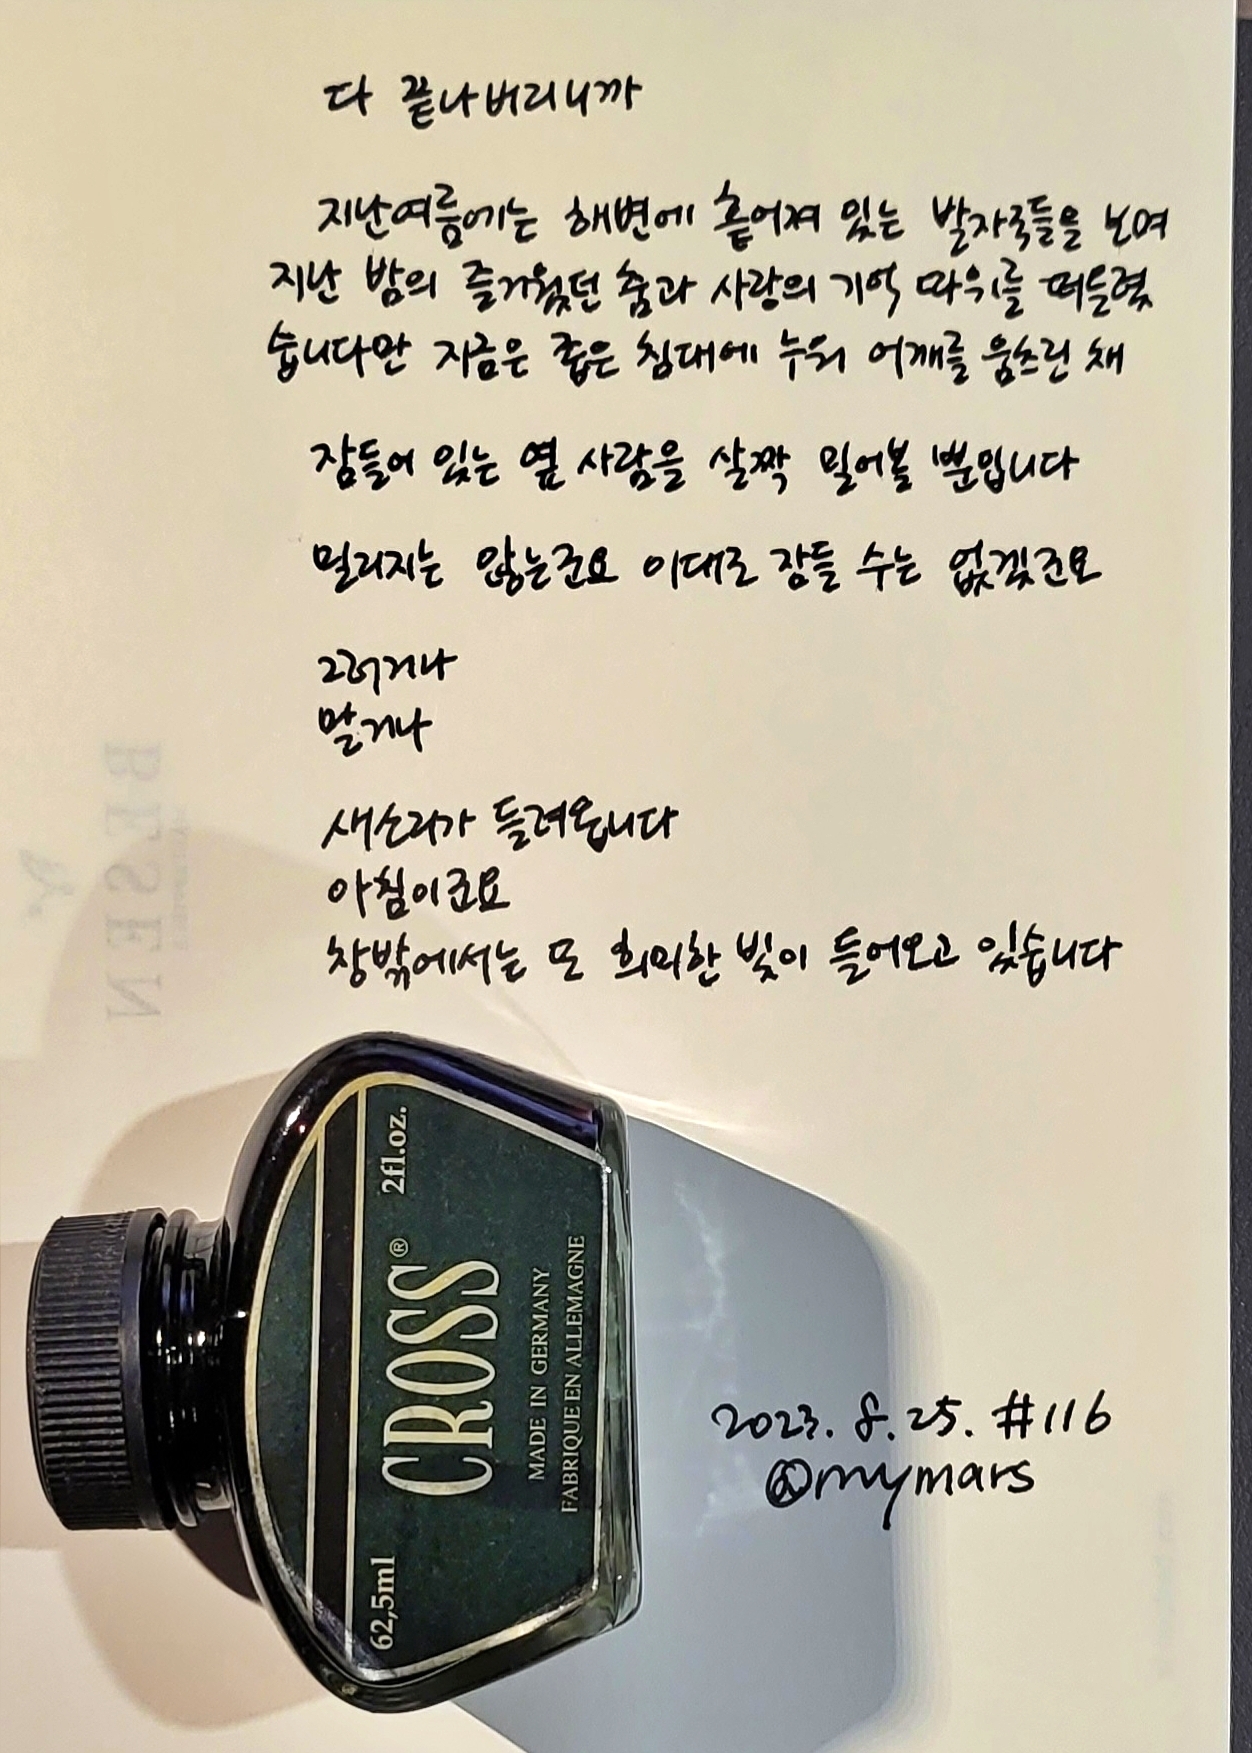 다 끝나버리니까
지난여름에는 해변에 흩어져 있는 발자국들을 보며
지난 밤의 즐거웠던 춤과 사랑의 기억 따위를 떠들렸
습니다만 지금은 좁은 침대에 누워 어깨를 움츠린 채
잠들어 있는 옆 사람을 살짝 밀어볼 뿐입니다
밀리지는 않는군요 이대로 잠들 수는 없겠군요
그러거나
말거나
새소리가 들려옵니다
아침이군요
창밖에서는 또 희미한 빛이 들어오고 있습니다
BESEN
CROSS®
62,5ml 2fl.oz.
MADE IN GERMANY
FABRIQUE EN ALLEMAGNE
2023. 8. 25. #116
@mymars